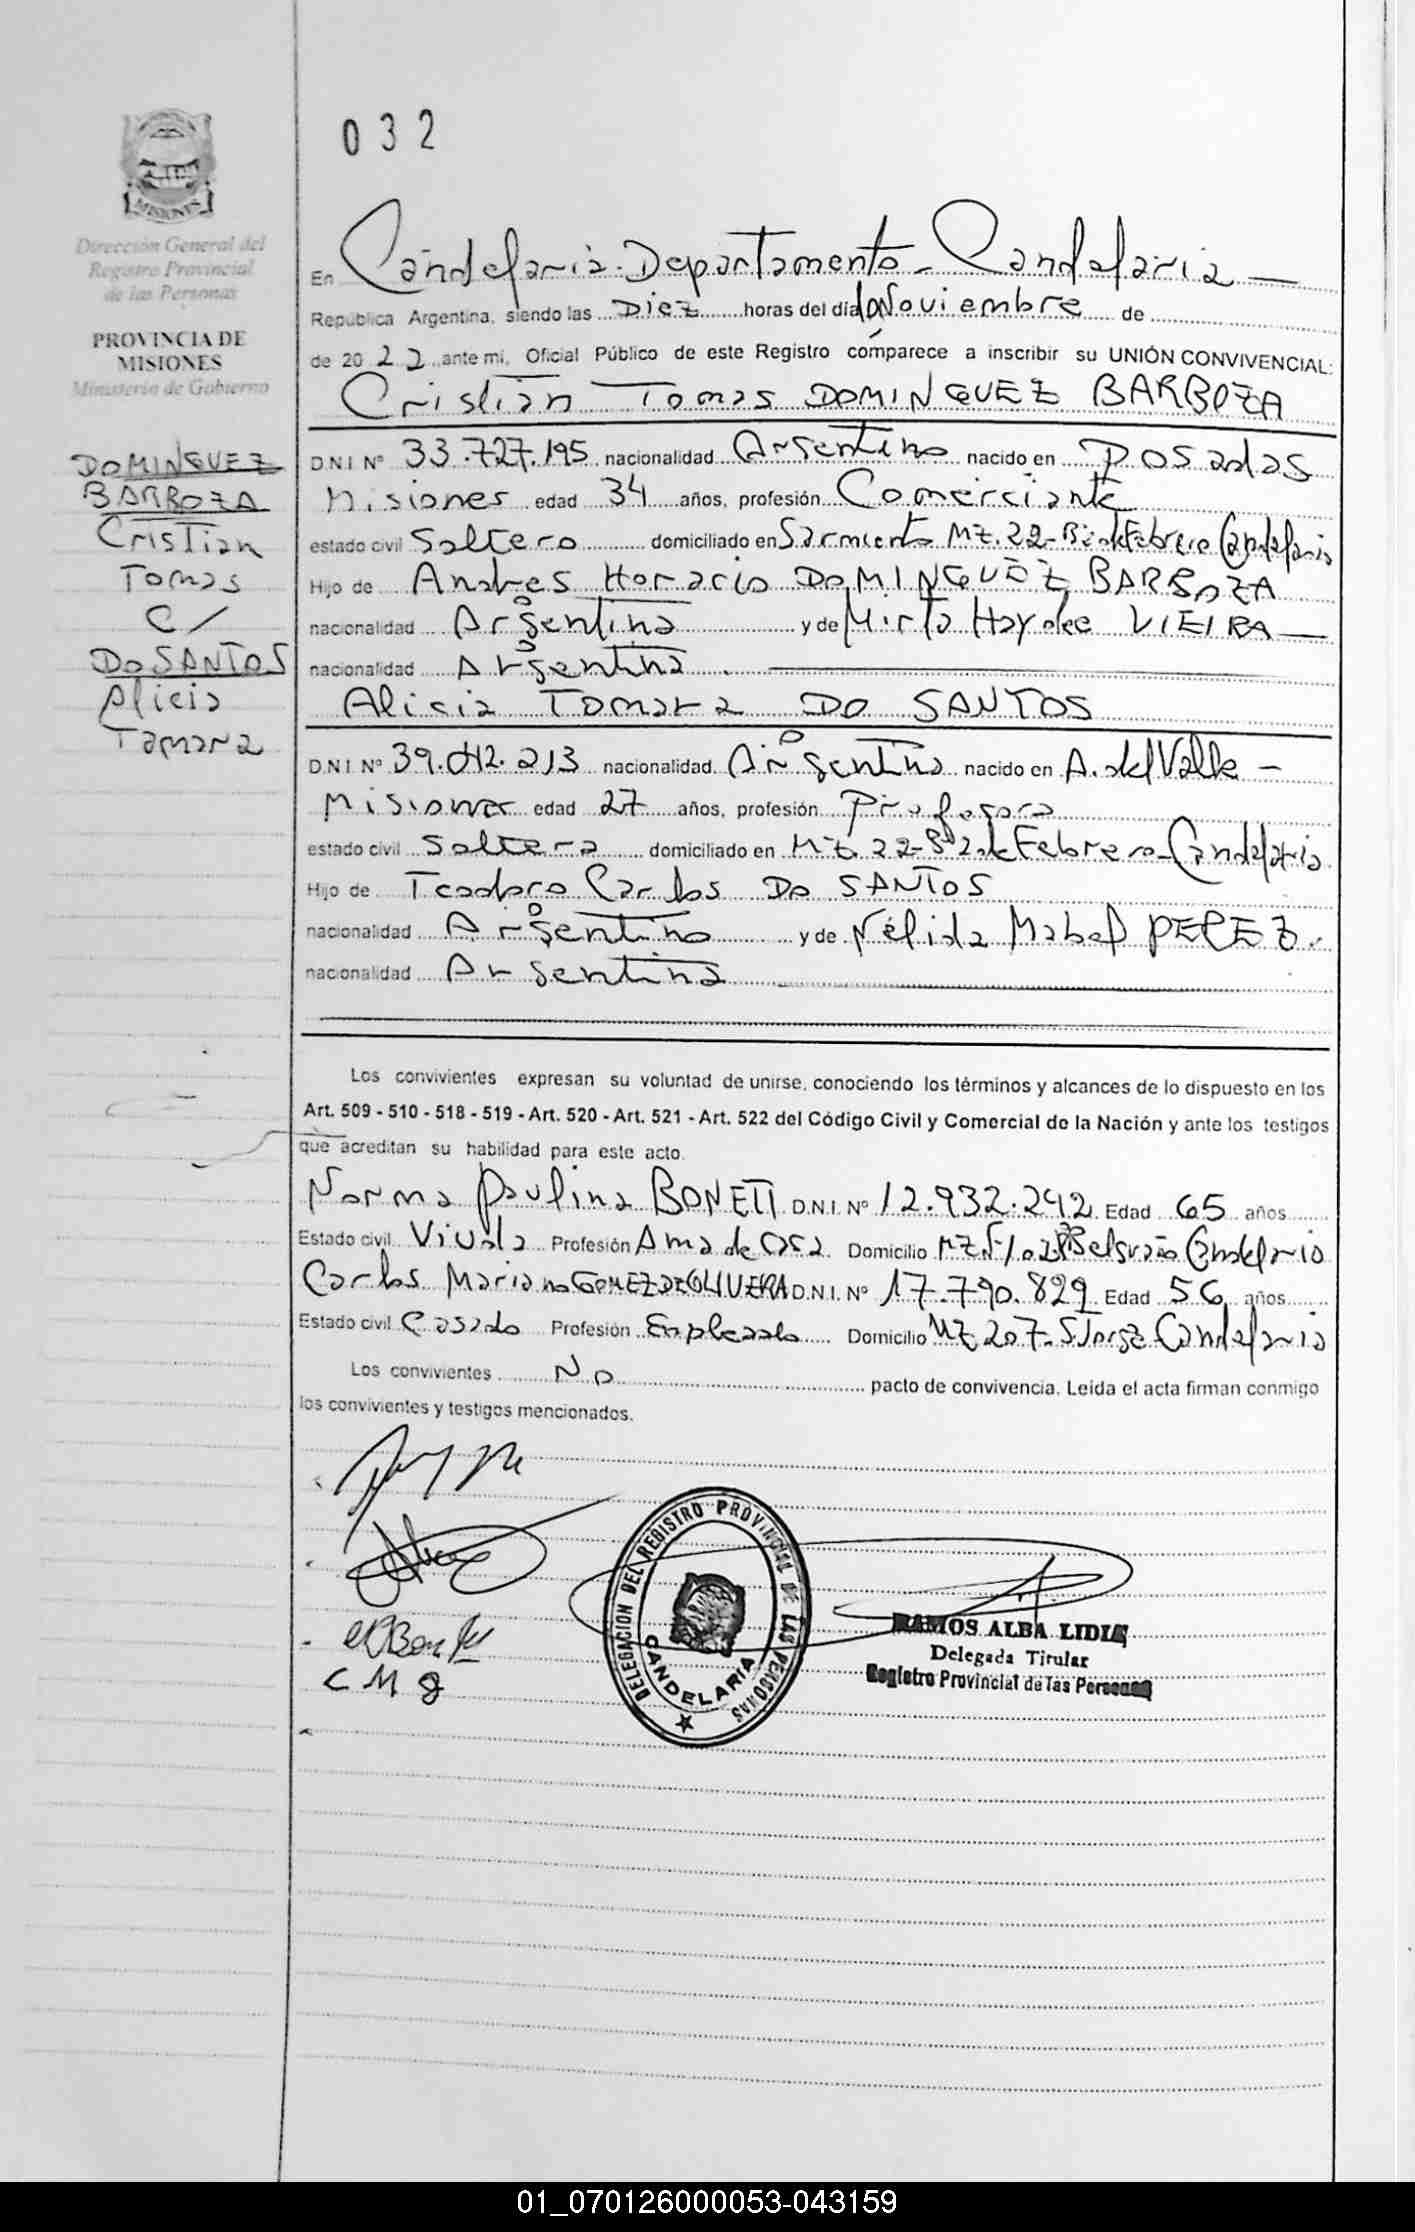 032
MISIONES
Dirección General del
Registro Provincial
de las Personas
PROVINCIA DE
MISIONES
Ministerio de Gobierno
DOMINGUEZ
BARBOZA
Cristian
Tomas
C/
Do SANTOS
Alicia
Tamara
En Candelaria. Departamento - Candelaria
República Argentina, siendo las Diez horas del día Noviembre de
de 2022 ante mi, Oficial Público de este Registro comparece a inscribir su UNIÓN CONVIVENCIAL:
Cristian Tomas DOMINGUEZ BARBOZA
D.N.I Nº 33.727.195 nacionalidad Argentino nacido en Posadas
Misiones edad 34 años, profesión Comerciante
estado civil Soltero domiciliado en Sarmiento Mz. 22- Febrero Candelaria
Hijo de Andres Horacio DOMINGUEZ BARBOZA
nacionalidad Argentina y de Mirta Haydee VIEIRA
nacionalidad Argentina
Alicia Tamara DO SANTOS
D.N.I Nº 39.042.213 nacionalidad Argentina nacido en A. del Valle -
Misiones edad 27 años, profesión Profesora
estado civil Soltera domiciliado en Mz 22- 2 de Febrero - Candelaria
Hijo de Teodoro Carlos Do SANTOS
nacionalidad Argentino y de Nélida Mabel PEREZ.
nacionalidad Argentina
Los convivientes expresan su voluntad de unirse, conociendo los términos y alcances de lo dispuesto en los
Art. 509 - 510 - 518 - 519 - Art. 520 - Art. 521 - Art. 522 del Código Civil y Comercial de la Nación y ante los testigos
que acreditan su habilidad para este acto.
Norma Paulina BONETI D.N.I. Nº 12.932.242 Edad 65 años
Estado civil Viuda Profesión Ama de casa Domicilio Belgrano Candelaria
Carlos Mariano GOMEZ DE OLIVERA D.N.I. Nº 17.790.829 Edad 56 años
Estado civil Casado Profesión Empleado Domicilio Mz 207- S Jorge Candelaria
Los convivientes No pacto de convivencia. Leída el acta firman conmigo
los convivientes y testigos mencionados.
C M g
DELEGACION DEL REGISTRO PROVINCIAL DE LAS PERSONAS
CANDELARIA
RAMOS ALBA LIDIA
Delegada Titular
Registro Provincial de las Personas
01_070126000053-043159